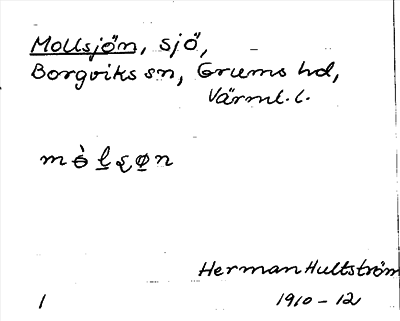 Mollsjön, sjö,
Borgviks sn, Grums hd,
Värml. l.
Herman Hultström
1 1910-12